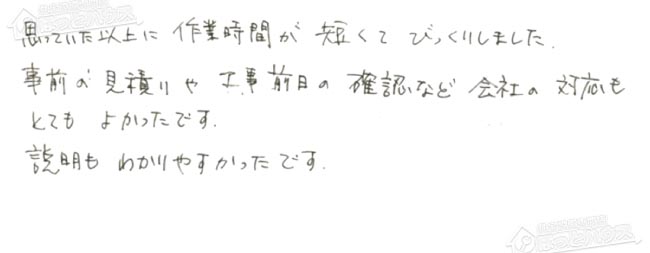 思っていた以上に 作業時間が 短くて びっくりしました.
事前の 見積りや 工事前日の 確認など 会社の 対応も
とても よかったです.
説明も わかりやすかったです.